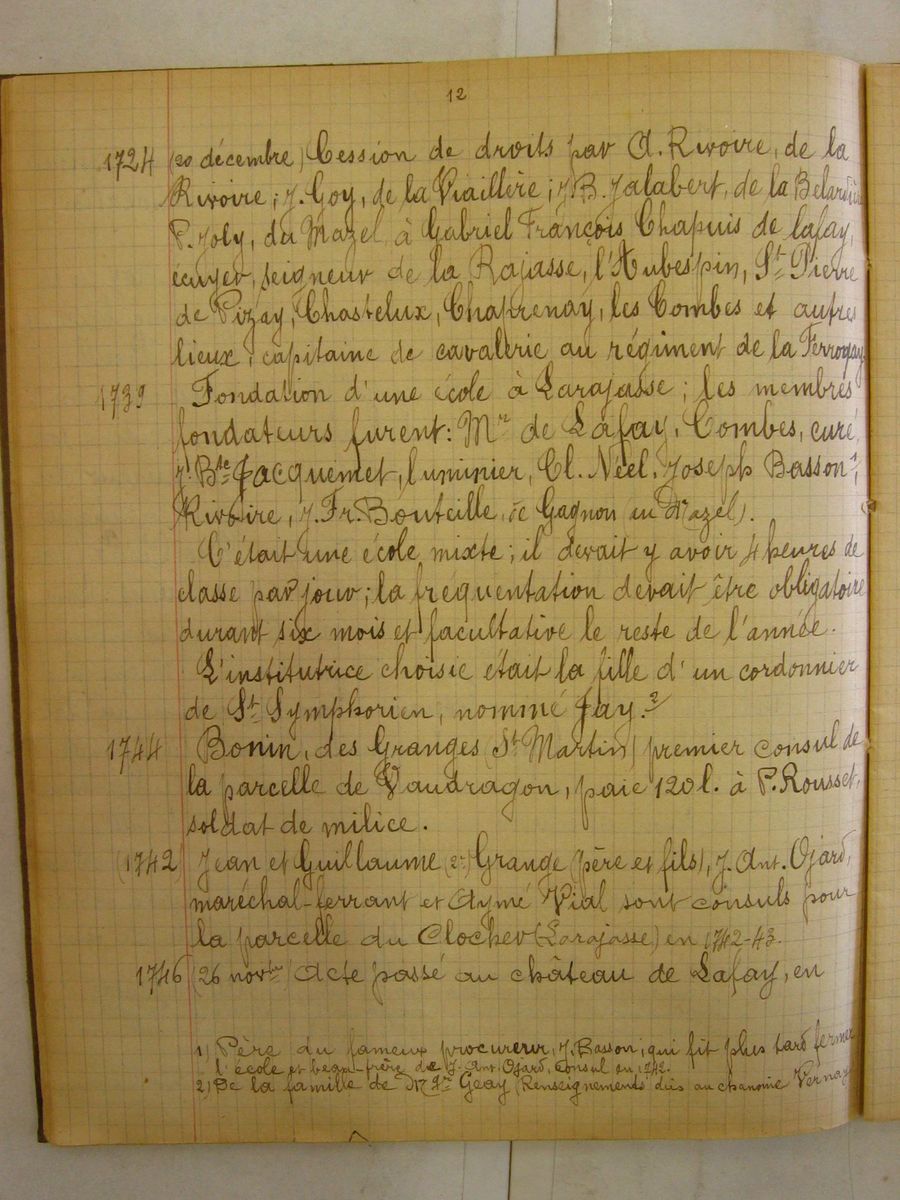 12
1724 (20 décembre) Cession de droits par A. Rivoire, de la
Rivoire ; J. Goy, de la Viaillère ; J. B. Jalabert, de la
P. Joly, du Mazel à Gabriel François Chapuis de lafay,
écuyer, seigneur de la Rajasse, l'Aubespin, St Pierre
de Pizay, Chastelux, Chaprenay, les Combes et autres
lieux, capitaine de cavalerie au régiment de la
1739 Fondation d'une école à Larajasse ; les membres
fondateurs furent : Mr de Lafay, Combes, curé,
J. Bte Jacquemet, luminier, Cl. Néel, Joseph Basson 1,
Rivoire, J. Fr. Bouteille, de Gagnon (au Mazel).
C'était une école mixte ; il devait y avoir 4 heures de
classe par jour ; la fréquentation devait être obligatoire
durant six mois et facultative le reste de l'année.
L'institutrice choisie était la fille d'un cordonnier
de St Symphorien, nommé Jay. 2
1744 Bonin, des Granges (St Martin) premier consul de
la parcelle de Vaudragon, paie 120 l. à P. Rousset,
soldat de milice.
(1742) Jean et Guillaume Grange (père et fils), J. Ant. Ojard,
maréchal-ferrant et Aymé Vial sont consuls pour
la parcelle du Clocher (Larajasse) en 1742-43.
1746 (26 novbre) Acte passé au château de Lafay, en
1) Père du fameux procureur, J. Basson, qui fit plus tard fermer
l'école et beau-frère de J. Ant. Ojard, consul en 1742.
2) De la famille de Mgr Geay (Renseignements dûs au chanoine Vernay